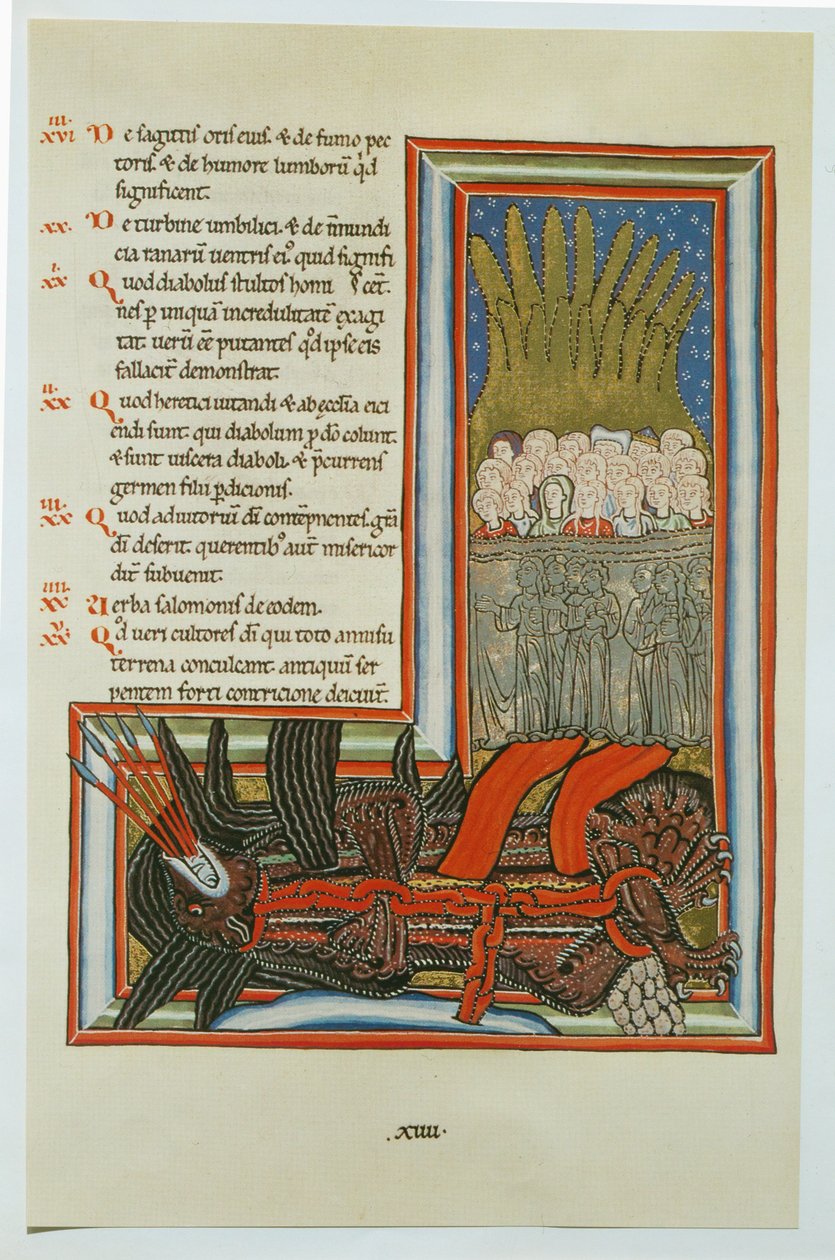 iii.
xvi De sagittis oris eius. & de fumo pec
toris. & de humore lumborū qͥd
significent.
xx. De turbine umbilici. & de īmundi
cia ranarū uentris ei᷒ quid signifi
i.
xx Quod diabolus stultos homi cēt.
nes ꝑ uniquā incredulitatē exagi
tat. uerū eē putantes qͦd ipse eis
fallacit̄ demonstrat.
ii.
xx Quod heretici uitandi & ab ęccl̄ia eici
endi sunt. qui diabolum ꝓ dō colunt.
& sunt uiscera diaboli. & p̄currens
germen filii ꝑdicionis.
iii.
xx Quod adiutoriū dī contēpnentes. grā
dī deserit. querentib᷒ aut̄ misericor
dit̄ subuenit.
iiii.
xx Verba salomonis de eodem.
v.
xx Qͦd ueri cultores dī qui toto annisu
terrena conculcant. antiquū ser
pentem forti contricione deiciūt.
.xiiii.